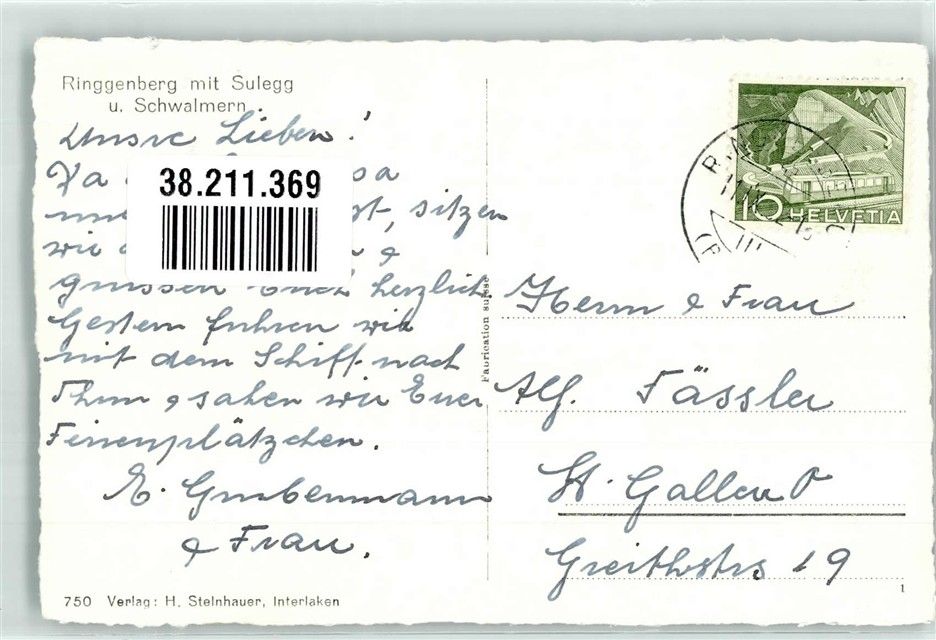 Ringgenberg mit Sulegg
u. Schwalmern.
Unsre Lieben!
38.211.369
sitzen
wir &
grüssen Euch herzlich.
Gestern fuhren wir
mit dem Schiff nach
Thun & sahen wir Euer
Ferienplätzchen.
E. Grubenmann
& Frau.
750 Verlag: H. Steinhauer, Interlaken
Fabrication suisse
10 HELVETIA
Herrn & Frau
Alf. Fässler
St. Gallen O
Greithstrs 19
1